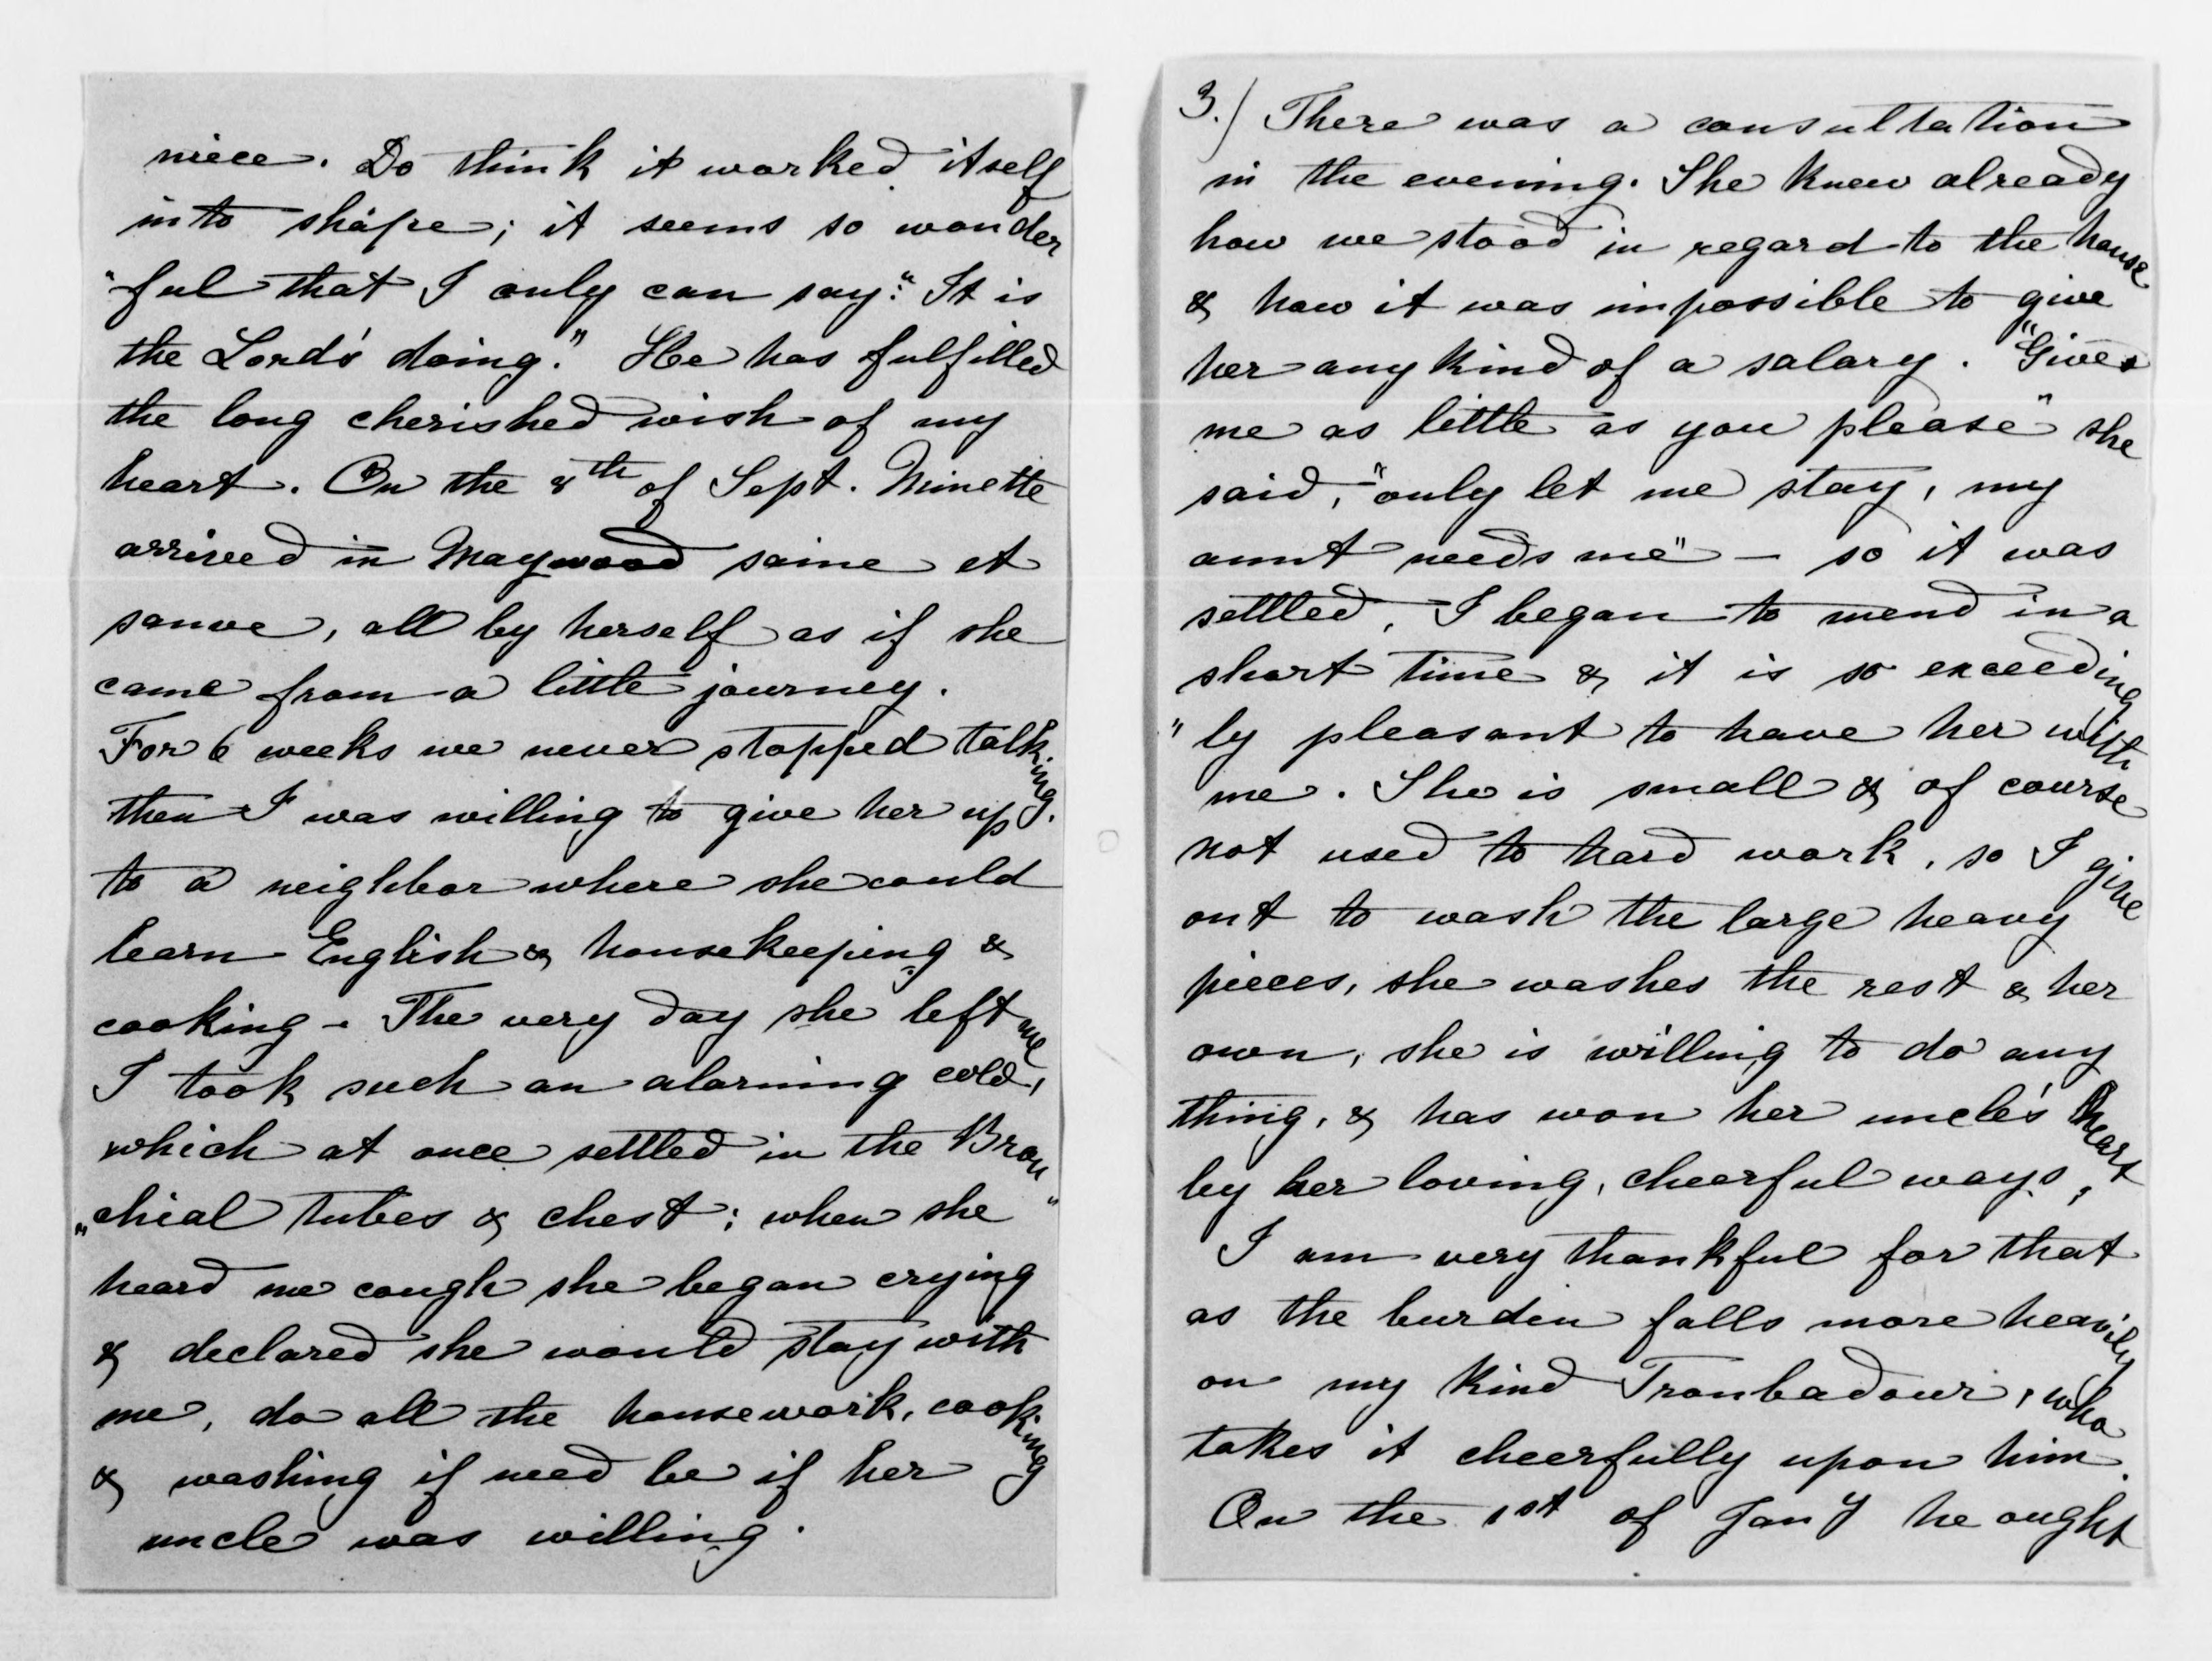 niece. Do think it worked itself
into shape; it seems so wonder
"ful that I only can say: "It is
the Lord's doing." He has fulfilled
the long cherished wish of my
heart. On the 8th of Sept. Minette
arrived in Maywood saine et
sauve, all by herself as if she
came from a little journey.
For 6 weeks we never stopped talking.
then I was willing to give her up
to a neighbor where she could
learn English & housekeeping &
cooking - The very day she left me
I took such an alarming cold,
which at once settled in the Bron"
"chial tubes & chest; when she
heard me cough she began crying
& declared she would stay with
me, do all the housework, cooking
& washing if need be if her
uncle was willing.
3.) There was a consultation
in the evening. She knew already
how we stood in regard to the house
& how it was impossible to give
her any kind of a salary. "Give
me as little as you please" she
said, "only let me stay, my
aunt needs me" - so it was
settled, I began to mend in a
short time & it is so exceeding
"ly pleasant to have her with
me. She is small & of course
not used to hard work, so I give
out to wash the large heavy
pieces, she washes the rest & her
own, she is willing to do any
thing, & has won her uncle's heart
by her loving, cheerful ways,
I am very thankful for that
as the burden falls more heavily
on my kind Troubadour, who
takes it cheerfully upon him.
On the 1st of Jany he ought